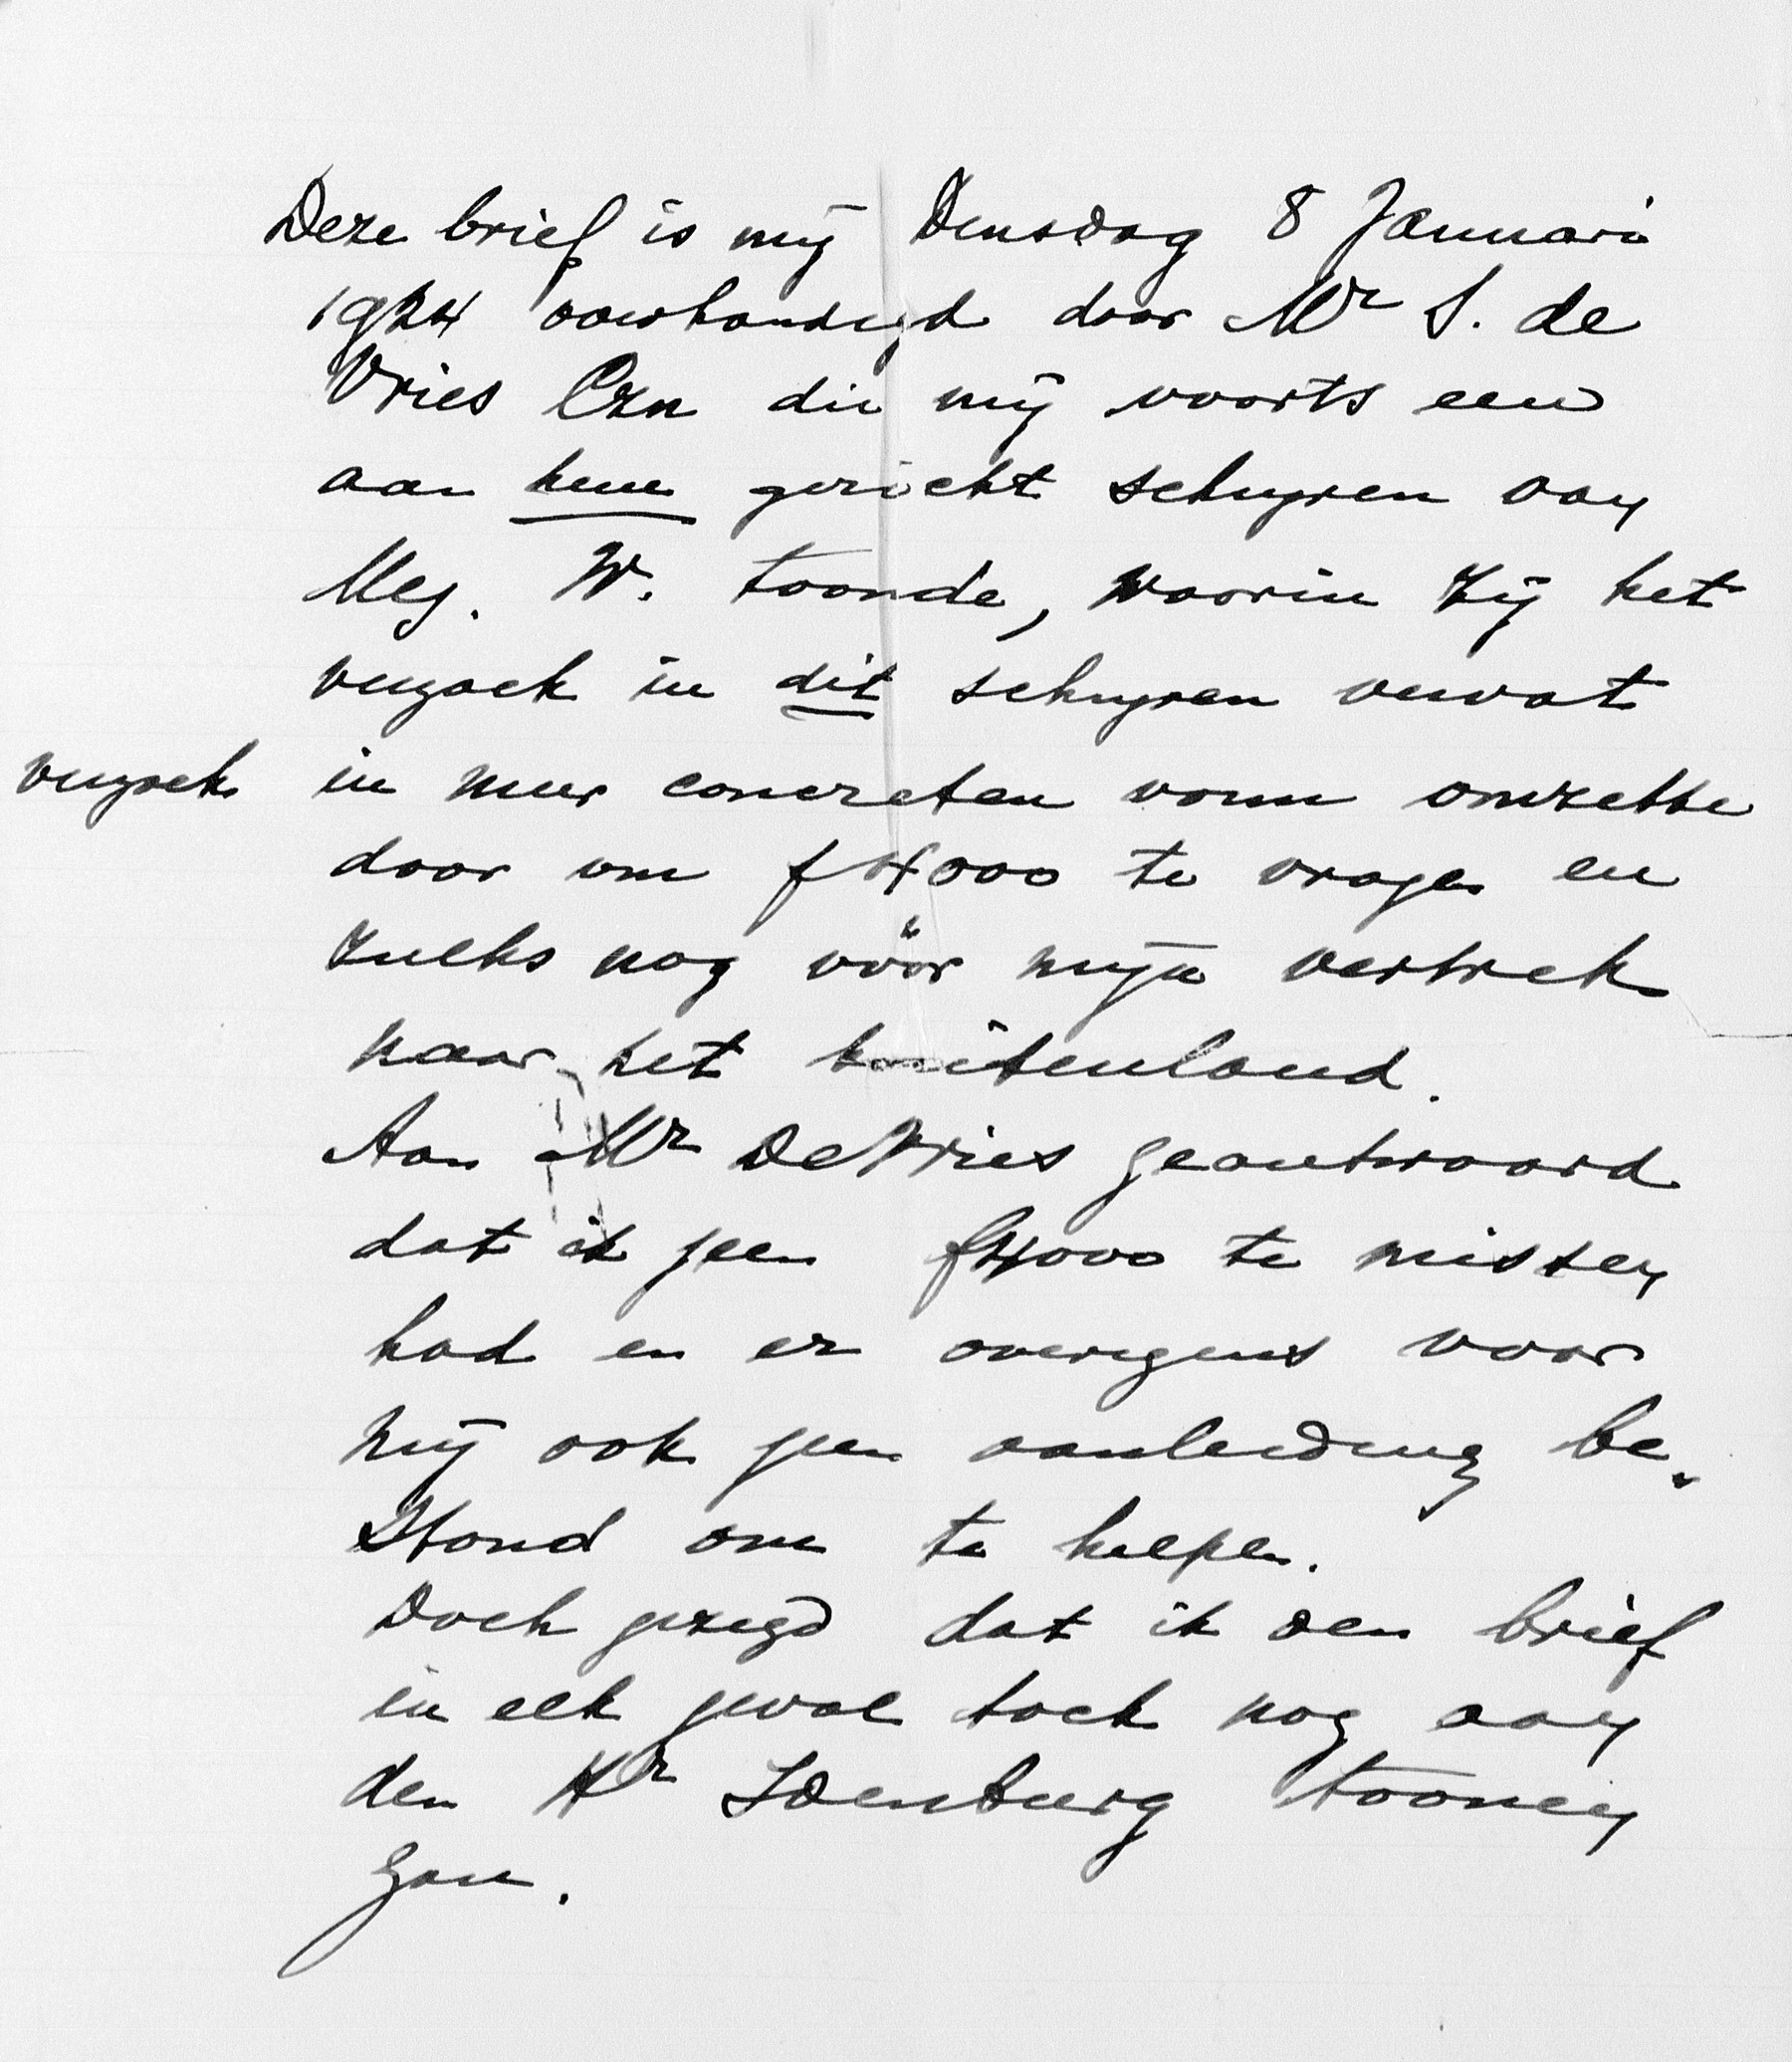 Deze brief is mij Dinsdag 8 Januari
1924 overhandigd door Mr S. de
Vries Czn die mij voorts een
aan hem gericht schrijven van
Mej. W. toonde, waarin zij het
verzoek in dit schrijven vervat
verzoek in meer concreten vorm omzette
door om f 4000 te vragen en
zulks nog vóór mijn vertrek
naar het buitenland.
Aan Mr De Vries geantwoord
dat ik geen f4000 te missen
had en er overigens voor
mij ook geen aanleiding be-
stond om te helpen.
Doch gezegd dat ik den brief
in elk geval toch nog aan
den Hr Idenburg toonen
zou.